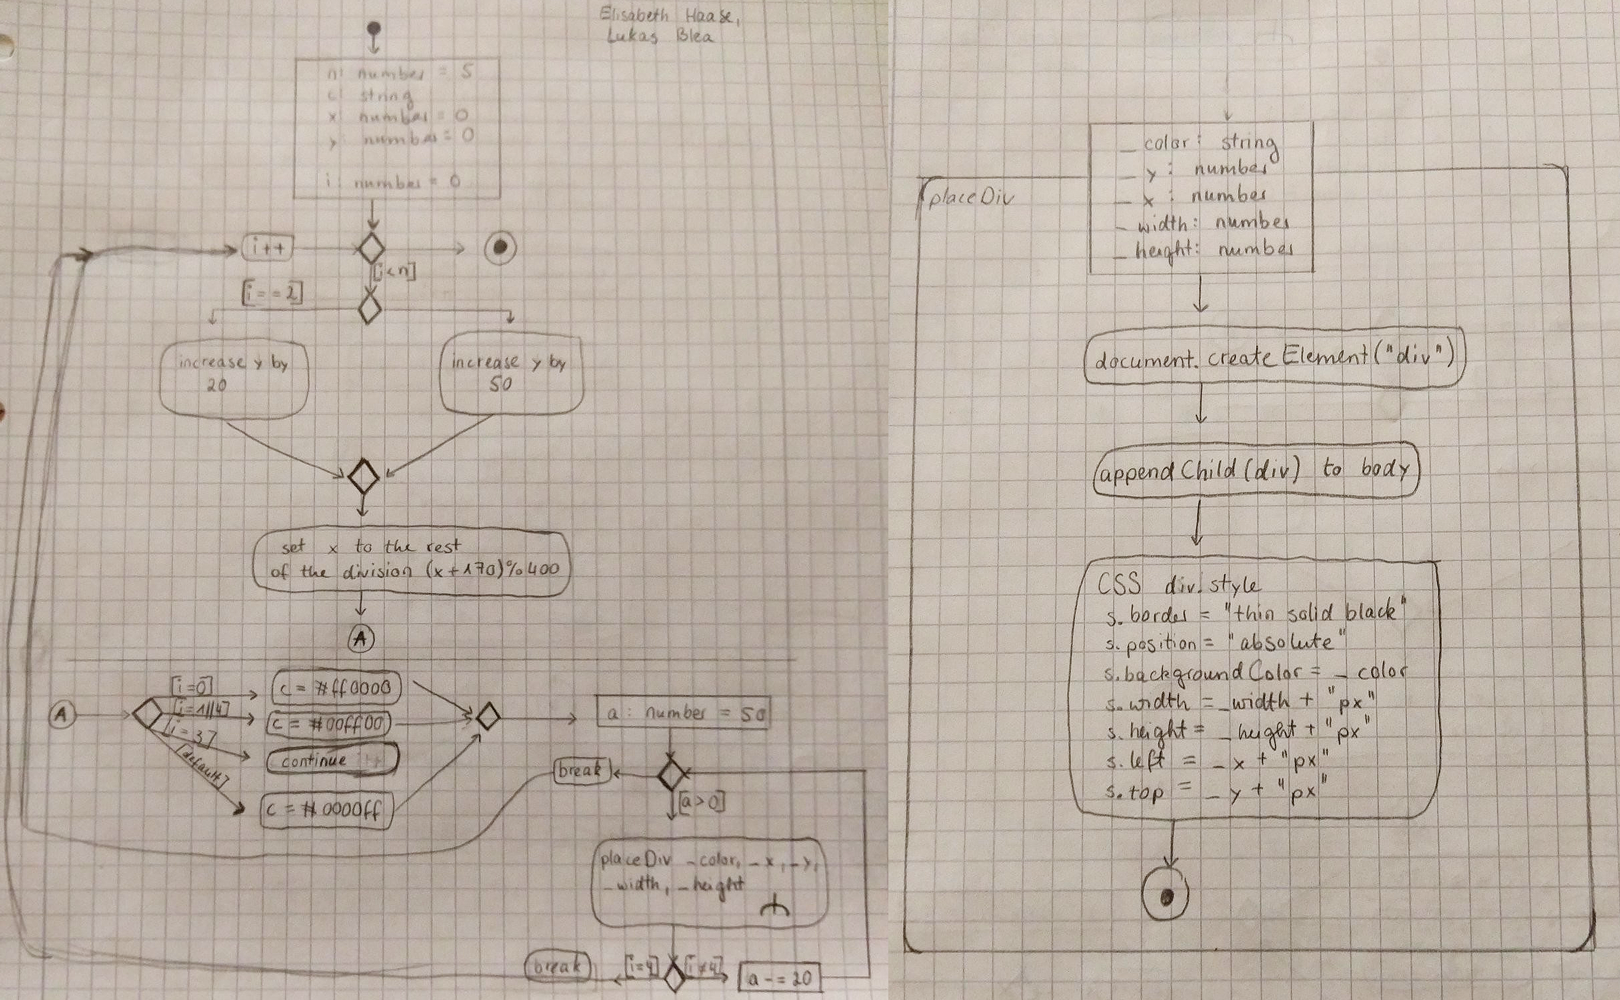 Elisabeth Haase,
Lukas Blea
n: number = 5
c: string
x: number = 0
y: number = 0
i: number = 0
i++
[i<n]
[i==2]
increase y by
20
increase y by
50
set x to the rest
of the division (x+170)%400
A
A
[i=0]
c = #ff0000
[i=1||4]
c = #00ff00
[i=3]
continue
[default]
c = #0000ff
a: number = 50
break
[a>0]
placeDiv _color, _x, _y,
_width, _height
break
[i=4]
[i≠4]
a -= 20
placeDiv
_color: string
_y: number
_x: number
_width: number
_height: number
document.createElement("div")
appendChild(div) to body
CSS div.style
s.border = "thin solid black"
s.position = "absolute"
s.backgroundColor = _color
s.width = _width + "px"
s.height = _height + "px"
s.left = _x + "px"
s.top = _y + "px"